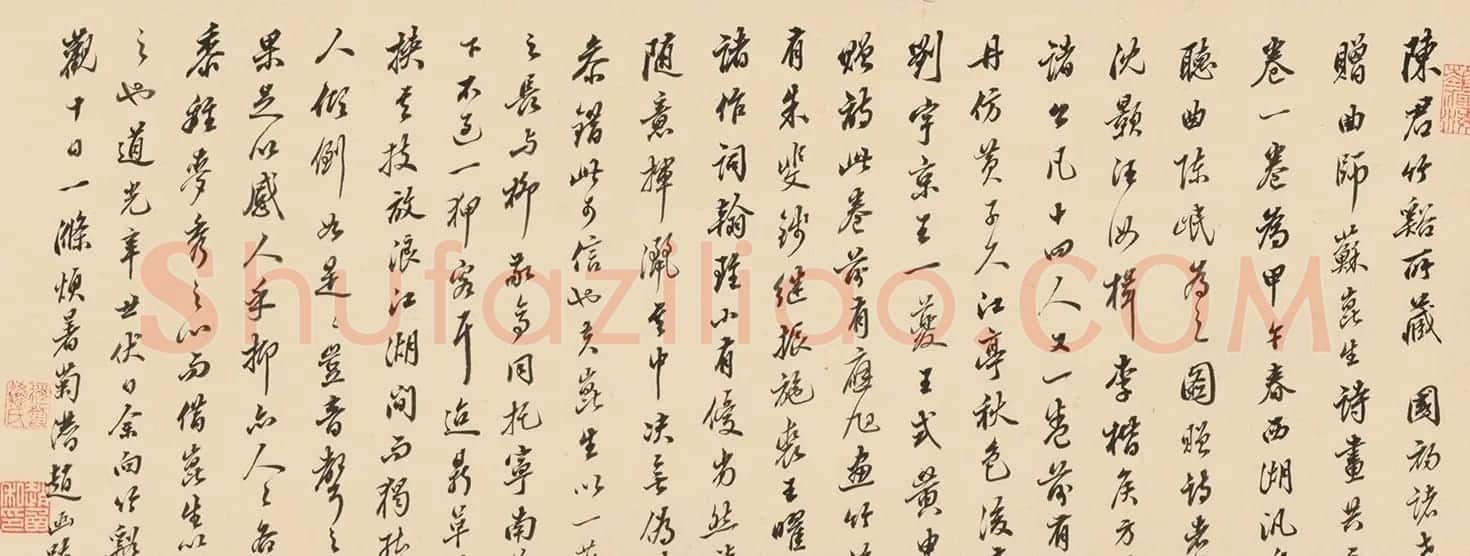 陳君竹谿所藏 國初諸
贈曲師蘇崑生詩畫共
卷一卷為甲午春西湖汎
聽曲陈岷為之圖贈詩者
沈顥汪汝楫李楷侯方
諸公凡十四人又一卷前有
丹仿黄子久江亭秋色後
劉宇京王一蓌王式黄申
赠詩此卷前有應旭畫竹
有朱斐錢继振施裘王曜
諸作詞翰雖小有優劣然
随意揮灑其中决無偽
参錯此可信也夫崑生以一
之長与柳敬亭同托寧南
下不过一狎客耳迨鼎革
挟其技放浪江湖间而獨
人倾倒如是是豈音聲之
果足以感人乎抑亦人之
黍離麥秀之心而借崑生以
之也道光辛丑伏日余向竹谿
觀十日一滌煩暑菊潛趙
Shufaziliao.COM